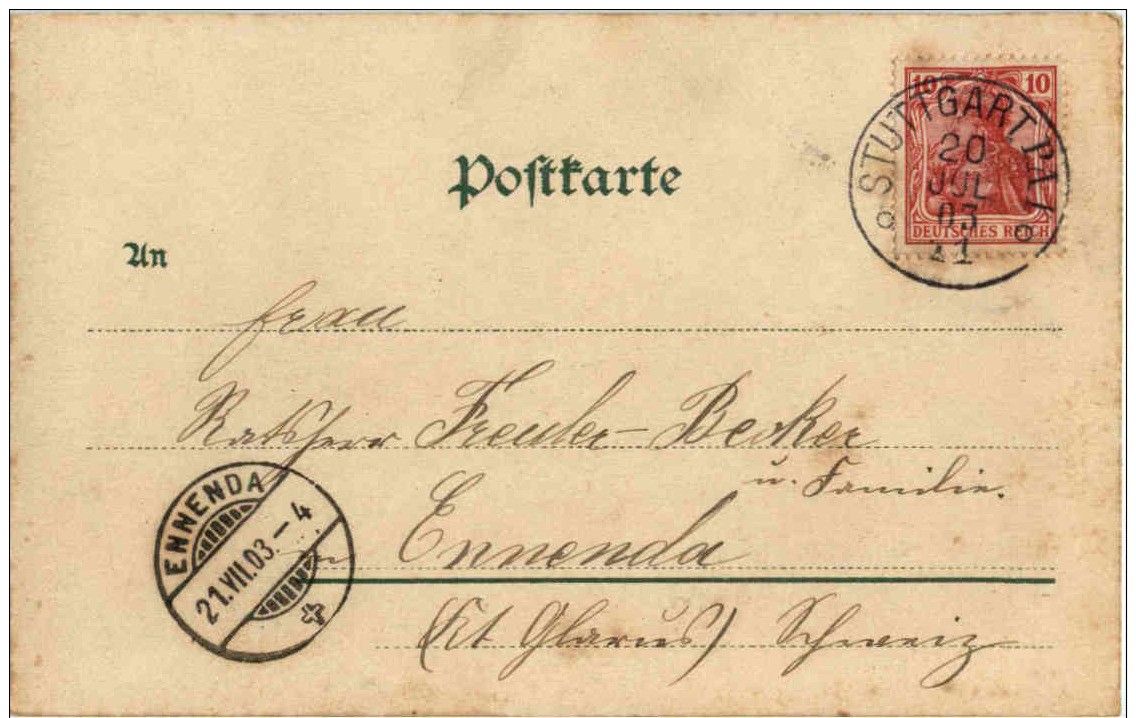 10 10
DEUTSCHES REICH
STUTTGART
20
JUL
03
Poſtkarte
An
Frau
Ratsherr Freuler-Becker
u. Familie.
in Ennenda
(Kt. Glarus) Schweiz
ENNENDA
21.VII.03.-4